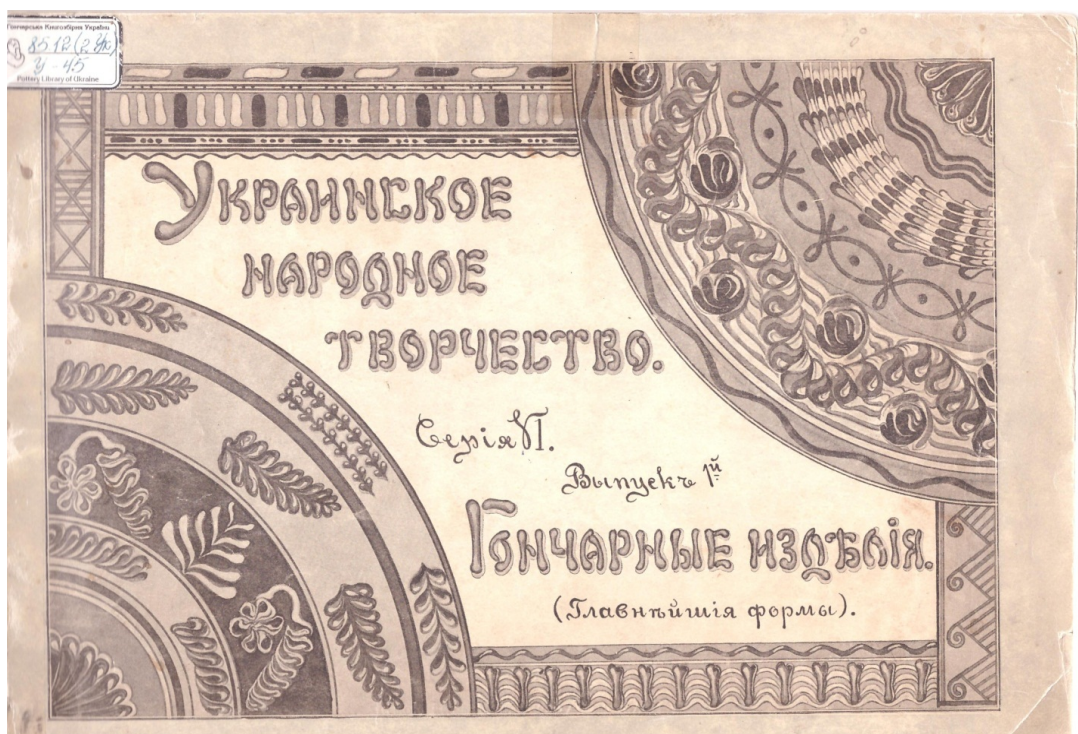 Гончарська Книгозбірня України
85.12(2Ук)
У-45
Pottery Library of Ukraine
Украинское
народное
творчество.
Серія VI.
Выпускъ 1й
Гончарные издѣлія.
(Главнѣйшія формы).